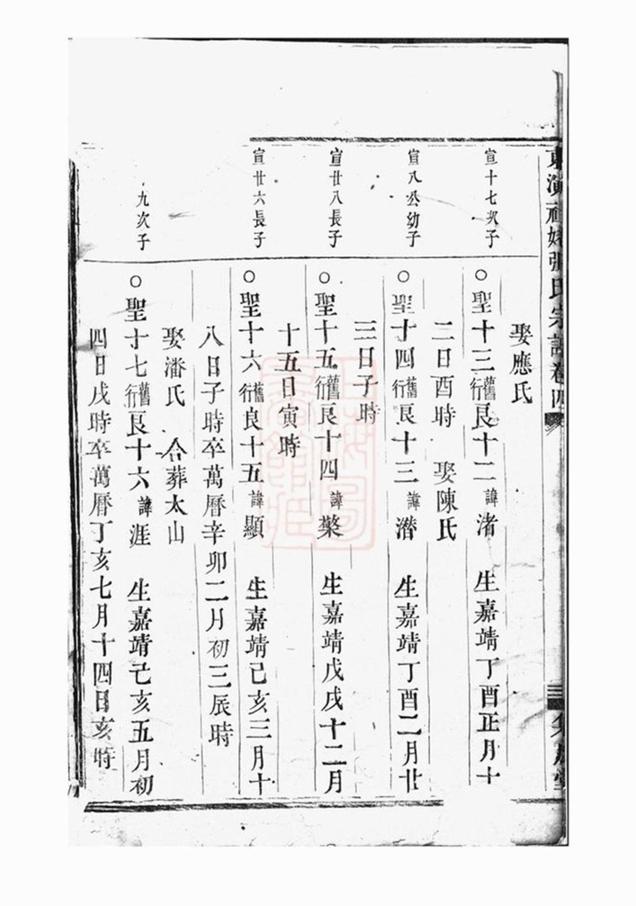 張氏宗譜卷四
娶應氏
宣十七次子
○聖十三舊行良十二諱渚 生嘉靖丁酉正月十
二日酉時 娶陳氏
宣八公幼子
○聖十四舊行良十三諱潛 生嘉靖丁酉二月廿
三日子時
宣廿八長子
○聖十五舊行良十四諱檠 生嘉靖戊戌十二月
十五日寅時
宣廿六長子
○聖十六舊行良十五諱顯 生嘉靖己亥三月十
八日子時卒萬曆辛卯二月初三辰時
娶潘氏 合葬太山
九次子
○聖十七舊行良十六諱涯 生嘉靖己亥五月初
四日戌時卒萬曆丁亥七月十四日亥時